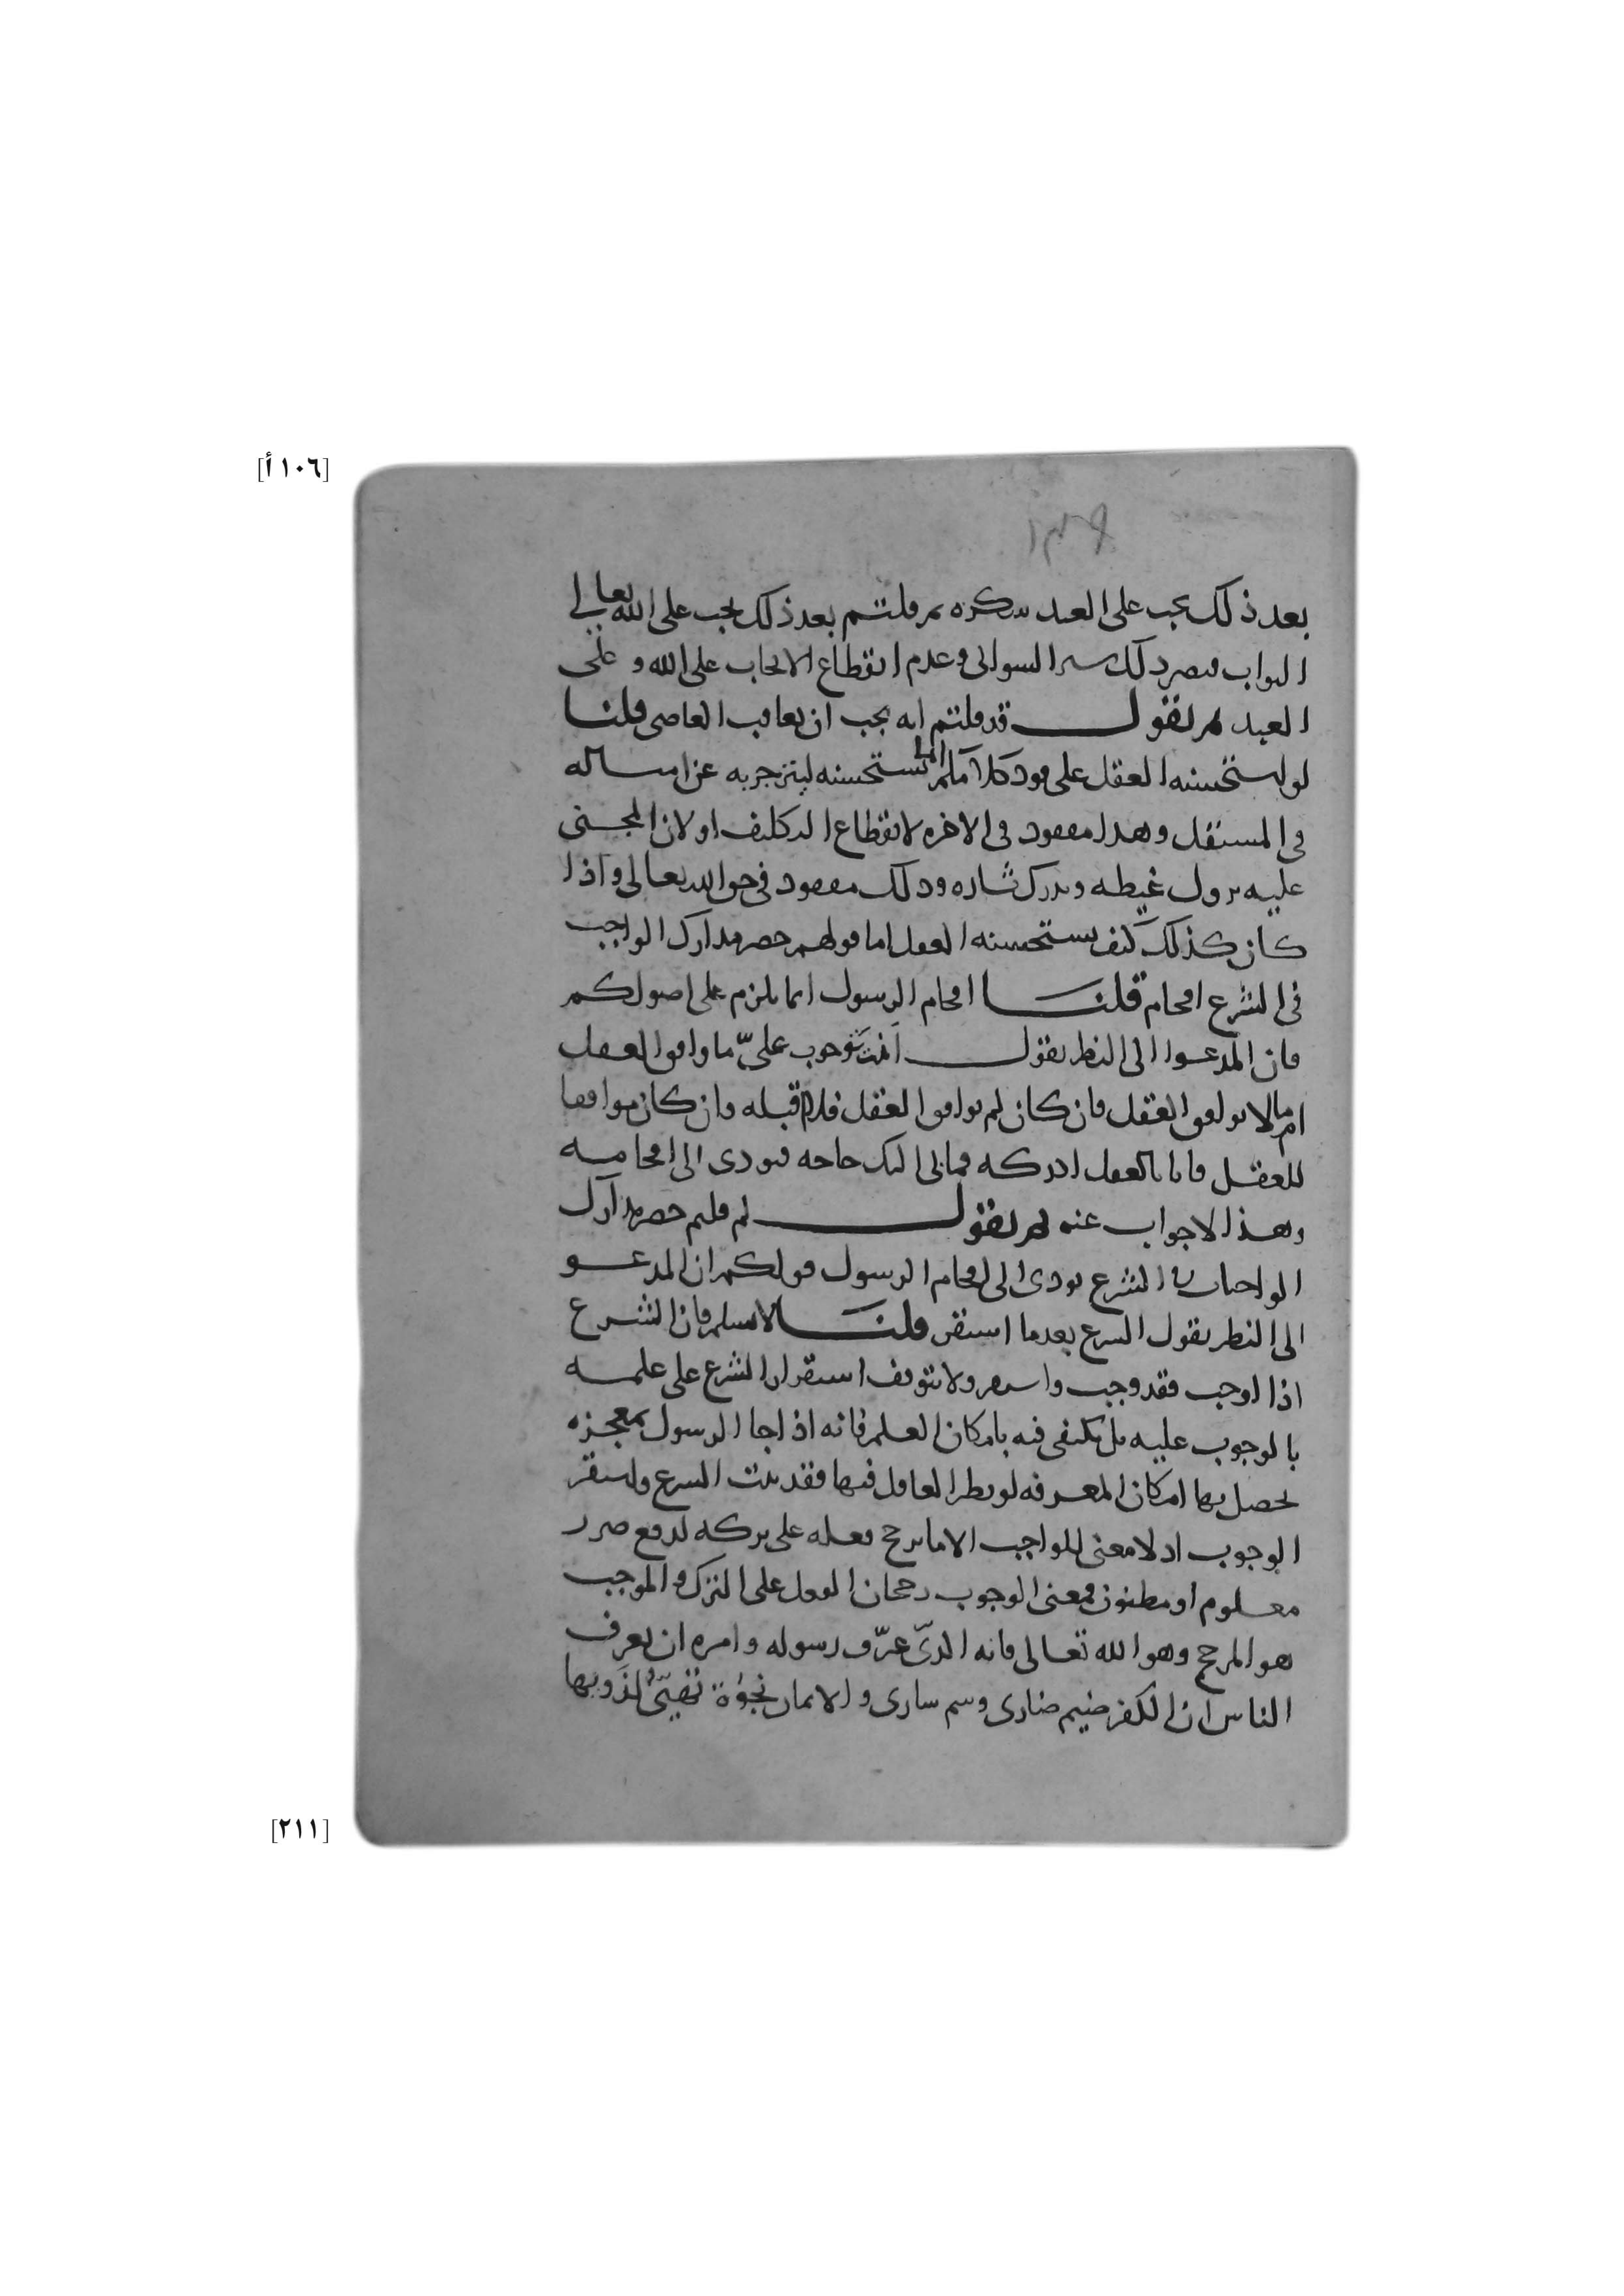 [١٠٦ أ]
بعد ذلك يجب على العبد شكره ثم قلتم بعد ذلك يجب على الله تعالى
الثواب فيصير ذلك سر السوالى وعدم انقطاع الايجاب على الله و على
العبد ثم نقول قد قلتم انه يجب ان يعاقب العاصى قلنا
لو استحسنه العقل على يستحسنه لينزجر به عن امساله
فى المستقبل وهذا مفقود فى الاخره لانقطاع التكليف او لان المجنى
عليه يزول غيظه ويدرك ثاره وذلك مفقود فى حق الله تعالى واذا
كان كذلك كيف يستحسنه العقل اما قولهم حصر مدارك الواجب
فى الشرع افحام قلنا افحام الرسول انما يلزم على اصولكم
فان المدعوا الى النظر يقول انت توجب علىّ ما وافق العقل
ام ما لا يوافق العقل فان كان لم يوافق العقل فلا اقبله وان كان موافقا
للعقل فانا بالعقل ادركه فما بى اليك حاجه فيودى الى افحامه
وهذا لا جواب عنه ثم نقول لم قلتم حصر مدارك
الواجبات فى الشرع يودى الى افحام الرسول قولكم ان المدعو
الى النظر يقول الشرع بعد ما استقر قلنا لا نسلم فان الشرع
اذا اوجب فقد وجب واستقر ولا يتوقف استقرار الشرع على علمه
بالوجوب عليه بل يكتفى فيه بامكان العلم فانه اذا جا الرسول بمعجزه
يحصل بها امكان المعرفه لو نظر العاقل فيها فقد ثبت الشرع واستقر
الوجوب اذ لا معنى للواجب الا ما يرجح فعله على تركه لدفع ضرر
معلوم او مظنون فمعنى الوجوب رجحان الفعل على الترك والموجب
هو المرجح وهو الله تعالى فانه الذىّ عرّف رسوله وامره ان يعرف
الناس ان الكفر ضيم ضارى وسم سارى والايمان نجوة
[٢١١]